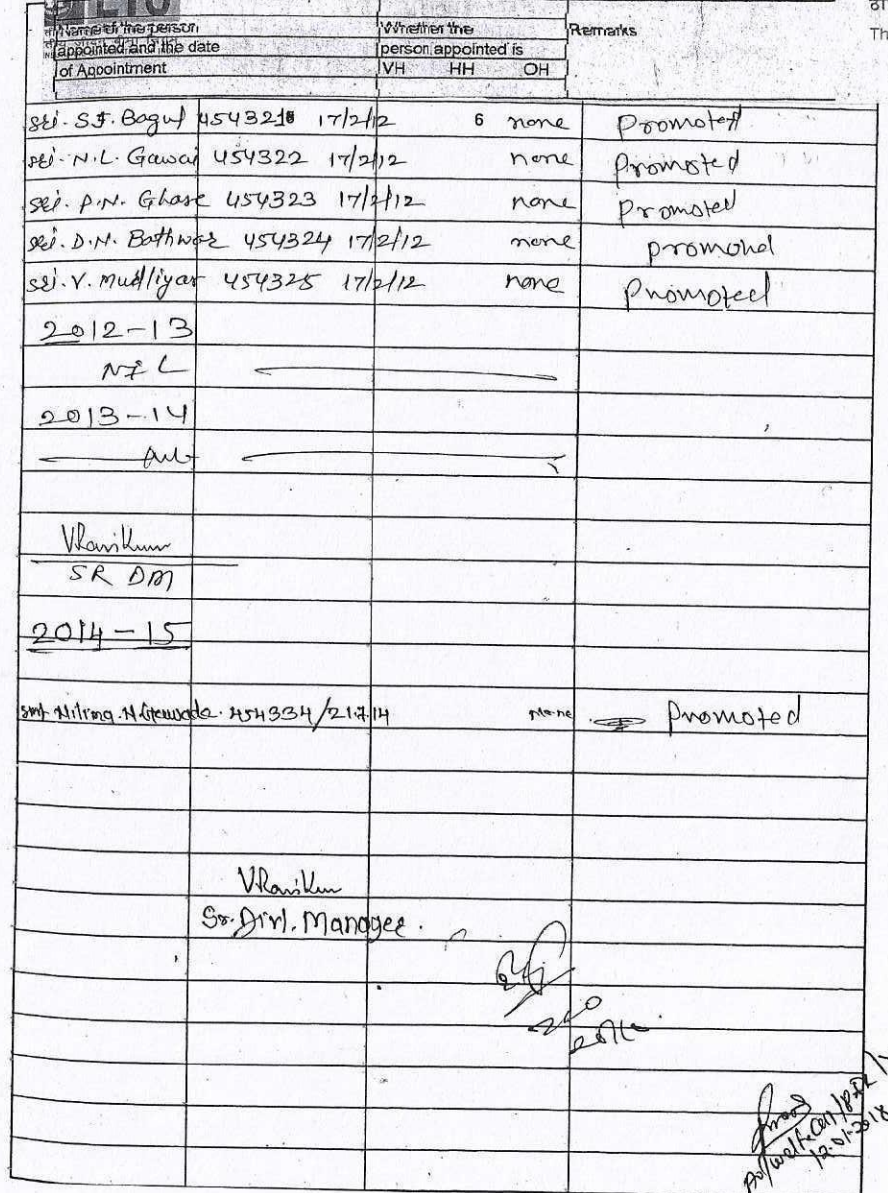 Name of the person Whether the Remarks
appointed and the date person appointed is
of Appointment VH HH OH
of
Th
sri. S.J. Bagul 454321 17/2/12 6 none Promoted
sri. N.L. Gawai 454322 17/2/12 none Promoted
sri. P.N. Ghase 454323 17/2/12 none Promoted
sri. D.N. Bathwar 454324 17/2/12 none promoted
sri. V. Mudliyar 454325 17/2/12 none Promoted
2012-13
NIL
2013-14
VRavikum
SR DM
2014-15
smt. Nilima. N. 454334/21.7.14 None Promoted
VRavikum
Sr. Divl. Manager.
12.01.2018